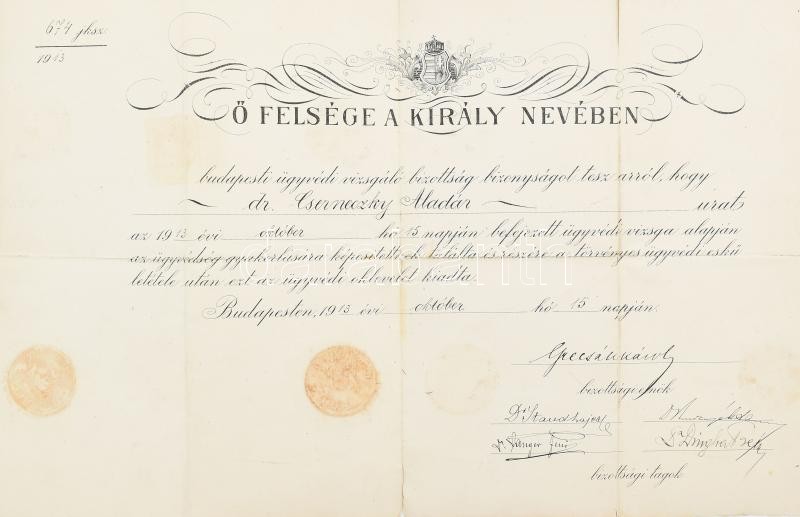 674 jksz.
1913
Ő FELSÉGE A KIRÁLY NEVÉBEN
budapesti ügyvédi vizsgáló bizottság bizonyságot tesz arról, hogy
~ dr. Cserneczky Aladár ~ urat
az 1913 évi október hó 15 napján befejezett ügyvédi vizsga alapján
az ügyvédség gyakorlására képesitettnek találta és részére a törvényes ügyvédi eskü
letétele után ezt az ügyvédi oklevelet kiadta.
Budapesten, 1913 évi október hó 15 napján.
bizottsági elnök
Dr
Dr. Jenő
Dr
bizottsági tagok